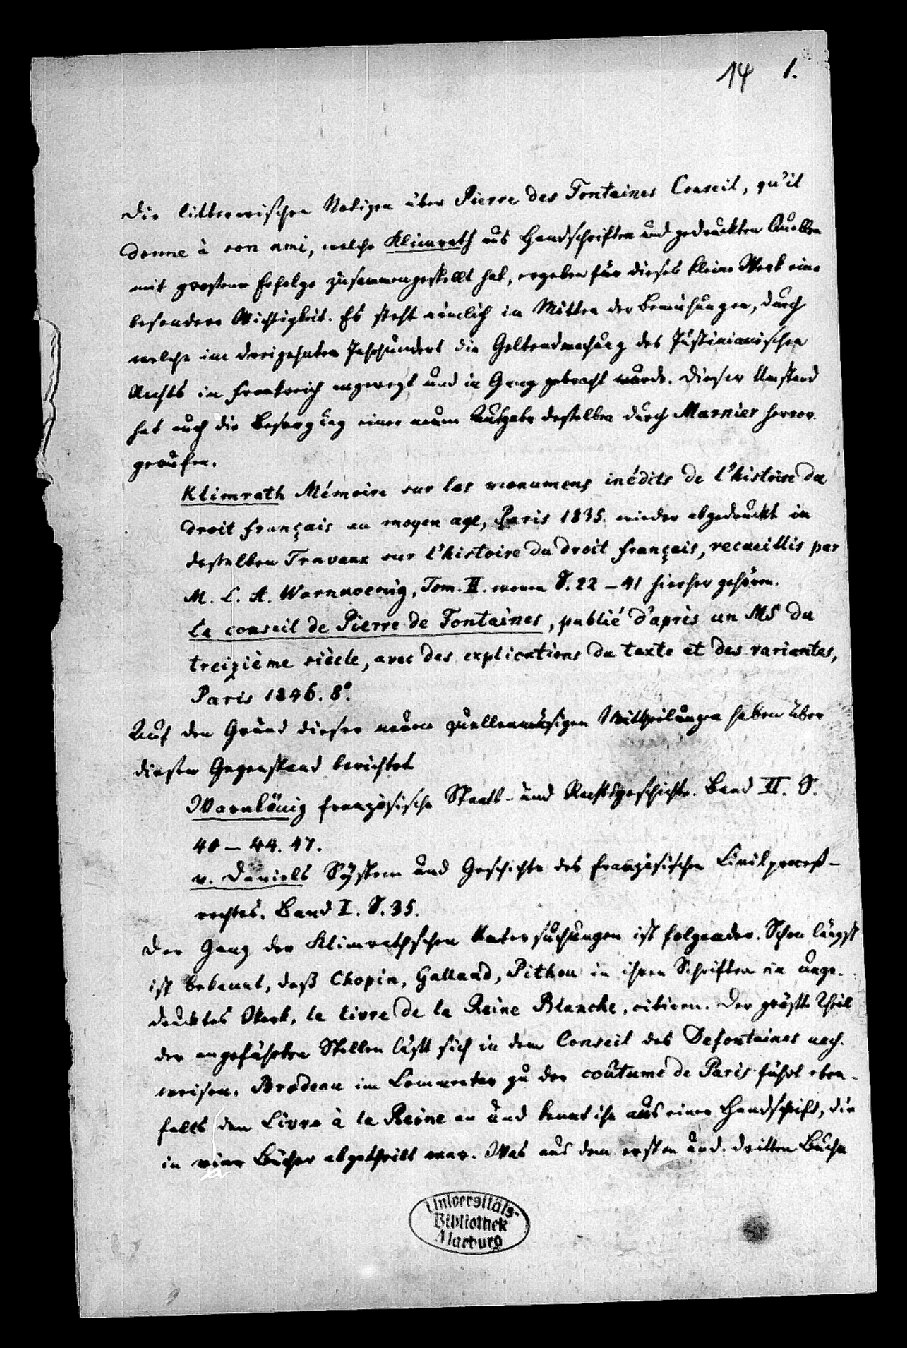 14 1.
Die litterarischen Notizen über Pierre des Fontaines Conseil, qu'il
donne à son ami, welche Klimrath aus Handschriften und gedruckten Quellen
mit grossem Erfolge zusammengestellt hat, ergeben für dieses kleine Werk eine
besondere Wichtigkeit. Es steht nämlich in Mitten der Bemühungen, durch
welche im dreizehnten Jahrhundert die Geltendmachung des Justinianischen
Rechts in Frankreich angeregt und in Gang gebracht wurde. Dieser Umstand
hat auch die Besorgung einer neuen Ausgabe desselben durch Marnier hervor
gerufen.
Klimrath Mémoire sur les monumens inédits de l'histoire du
droit français au moyen age, Paris 1835. wieder abgedruckt in
desselben Travaux sur l'histoire du droit français, recueillis par
M. L. A. Warnkoenig, Tom. II. wovon S. 22 – 41 hierher gehören.
Le conseil de Pierre de Fontaines, publié d'après un MS du
treizième siècle, avec des explications du texte et des variantes,
Paris 1846. 8°.
Auf den Grund dieser neuen quellenmäsigen Mittheilungen haben über
diesen Gegenstand berichtet
Warnkönig französische Staats- und Rechtsgeschichte. Band II. S.
40 – 44. 47.
v. Daniels System und Geschichte des französischen Civilprocess-
rechtes. Band I. S. 35.
Der Gang der Klimrathschen Untersuchungen ist folgender. Schon längst
ist bekannt, daß Chopin, Galland, Pithou in ihren Schriften ein unge-
drucktes Werk, le livre de la Reine Blanche, citiren. Der größte Theil
der angeführten Stellen läßt sich in dem Conseil des Defontaines nach
weisen. Brodeau im Commentar zu der coûtume de Paris führt eben-
falls den Livre à la Reine an und kennt ihn aus einer Handschrift, die
in vier Bücher abgetheilt war. Was aus dem ersten und dritten Buche
Universitäts-
Bibliothek
Marburg